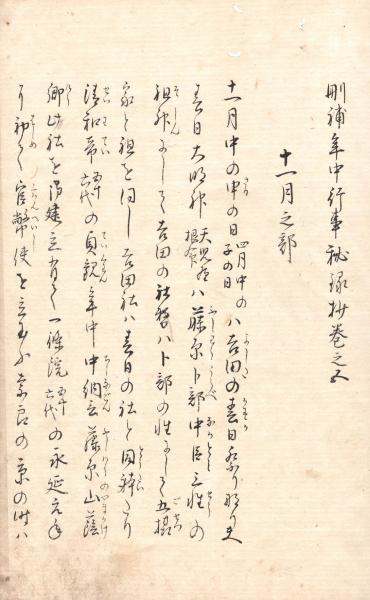 刪補年中行事秘録抄巻之五
十一月之部
十一月中の申の日 四月中の子の日 ハ吉田の春日祭り始り夫
春日大明神 天児屋根命 ハ藤原卜部中臣三姓の
祖神にして吉田の社務ハ卜部の姓にして五摂
家と祖を同し吉田社ハ春日の社と同躰たり
清和帝 五十六代 の貞観年中中納言藤原山蔭
卿此社を建立有て一條院 六十六代 の永延元年
より初て官幣使を立給ふ奈良の京の時ハ